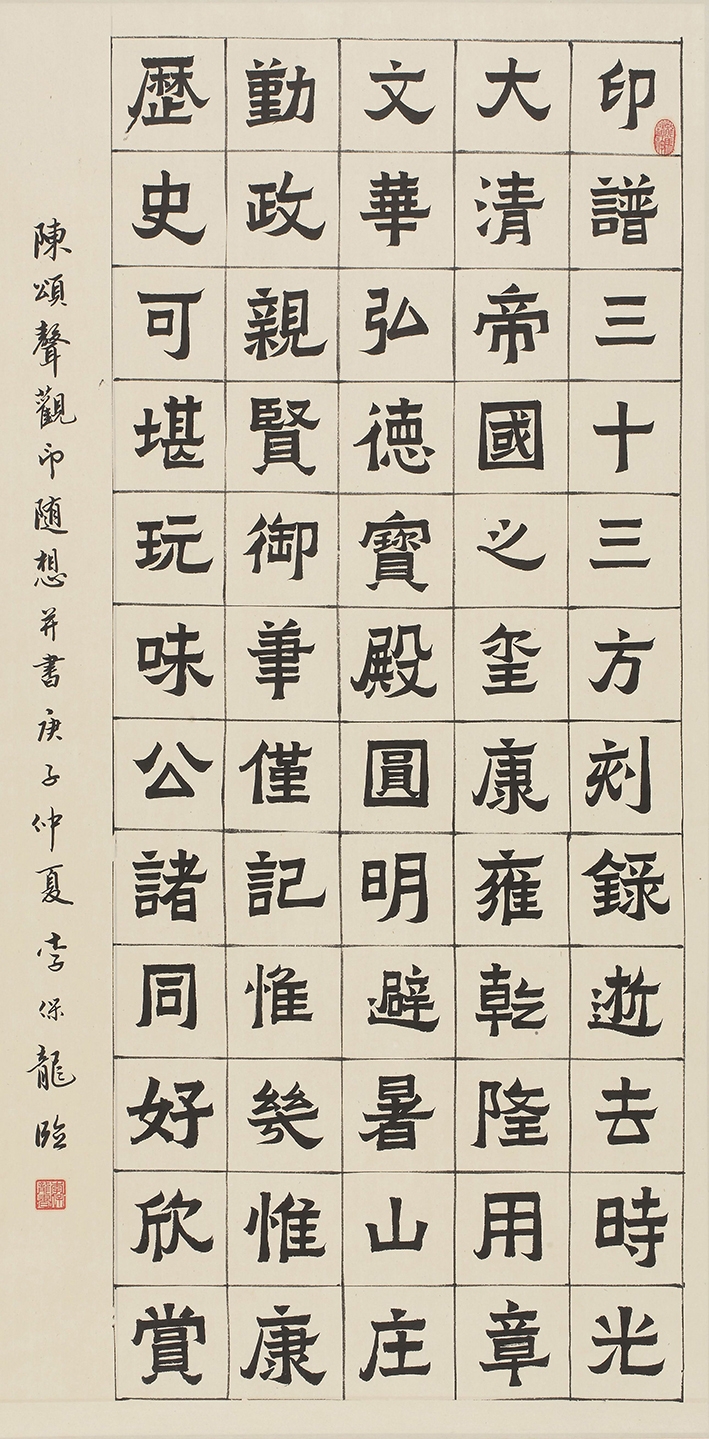 印譜三十三方刻錄逝去時光
大清帝國之玺康雍乾隆用章
文華弘德寳殿圓明避暑山庄
勤政親賢御筆僅記惟㡬惟康
歷史可堪玩味公諸同好欣賞
陳頌聲觀印随想并書庚子仲夏李保龍臨